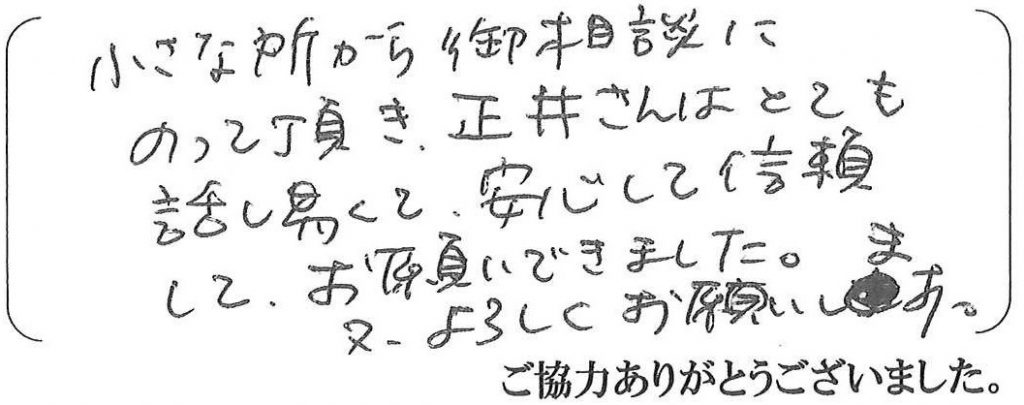 小さな所から御相談に
のって頂き、正井さんはとても
話し易くて、安心して信頼
して、お願いできました。
又、よろしくお願いします。
ご協力ありがとうございました。